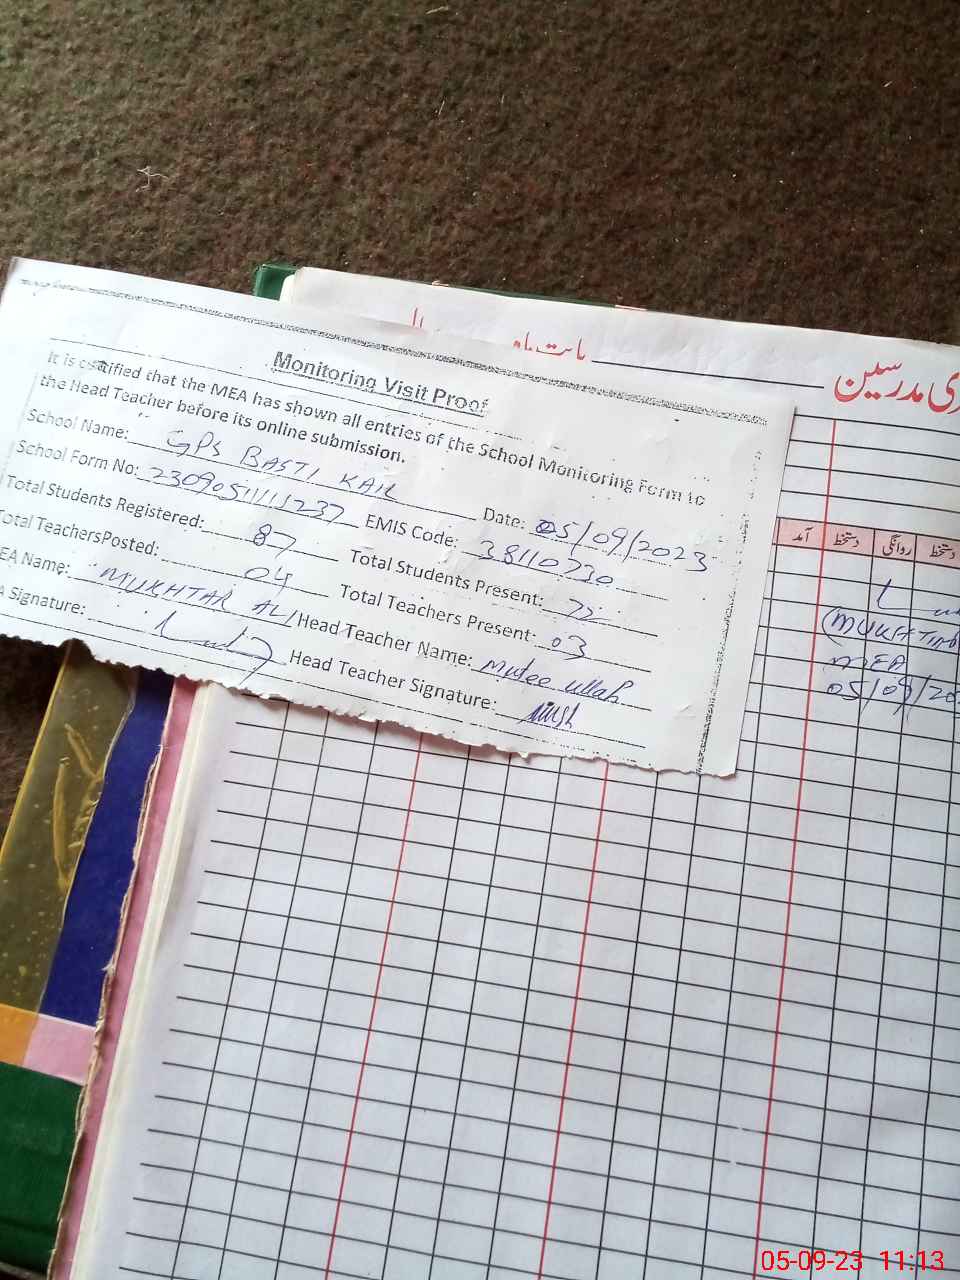 بابت ماہ
ی مدرسین
Monitoring Visit Proof
It is certified that the MEA has shown all entries of the School Monitoring Form to
the Head Teacher before its online submission.
School Name: GPS BASTI KAIL Date: 05/09/2023
School Form No: EMIS Code: 38110730
Total Students Registered: 87 Total Students Present: 72
Total TeachersPosted: 04 Total Teachers Present: 03
EA Name: MUKHTAR ALI Head Teacher Name: Mutee ullah
A Signature: Head Teacher Signature:
آمد دستخط روانگی دستخط
(MUKHTAR
MEA
05/09/20
05-09-23 11:13